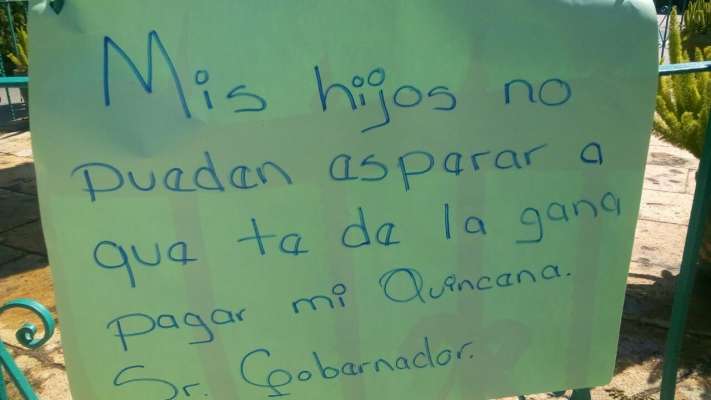 Mis hijos no
pueden esperar a
que te de la gana
pagar mi Quincena.
Sr. Gobernador.